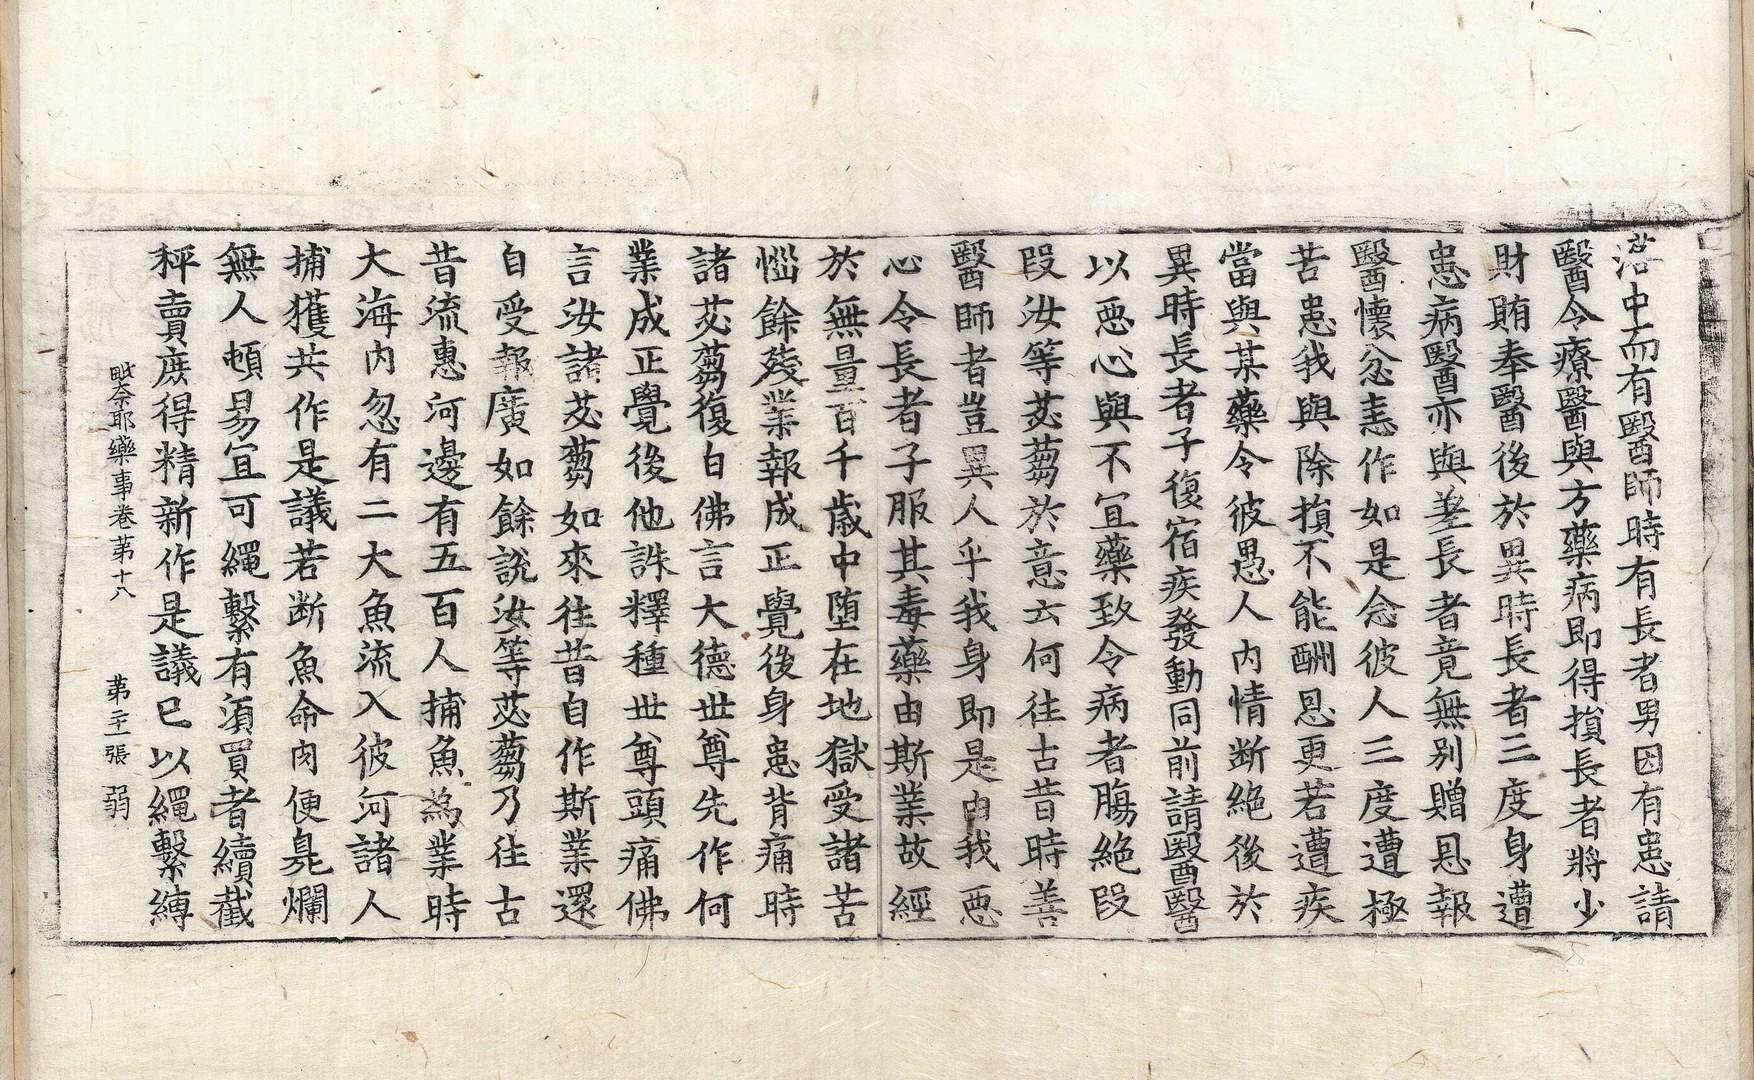 落中而有醫師時有長者男因有患請
醫令療醫與方藥病即得損長者將少
財賄奉醫後於異時長者三度身遭
患病醫亦與差長者竟無別贈恩報
醫懷忿恚作如是念彼人三度遭極
苦患我與除損不能酬恩更若遭疾
當與某藥令彼愚人內情断絶後於
異時長者子復宿疾發動同前請醫醫
以惡心與不宜藥致令病者膓絶叚
叚汝等苾蒭於意云何往古昔時善
醫師者豈異人乎我身即是由我惡
心令長者子服其毒藥由斯業故經
於無量百千歲中墮在地獄受諸苦
惱餘殘業報成正覺後身患背痛時
諸苾蒭復白佛言大德世尊先作何
業成正覺後他誅釋種世尊頭痛佛
言汝諸苾蒭如來往昔自作斯業還
自受報廣如餘說汝等苾蒭乃往古
昔流惠河邊有五百人捕魚為業時
大海內忽有二大魚流入彼河諸人
捕獲共作是議若断魚命肉便臭爛
無人頓易宜可繩繫有須買者續截
秤賣庶得精新作是議已以繩繫縛
毗奈耶藥事卷苐十八 苐二十一張 弱